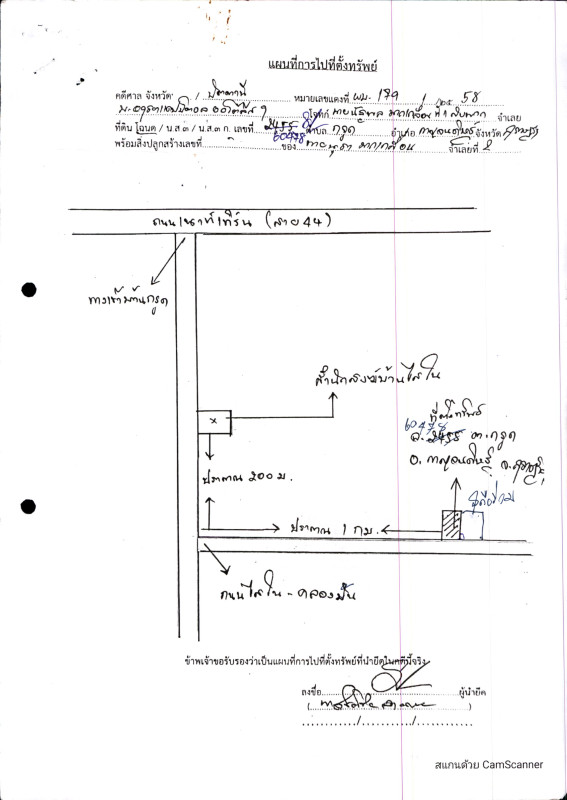 แผนที่การไปที่ตั้งทรัพย์
คดีศาล จังหวัด / ปัตตานี หมายเลขแดงที่ ผบ. 179 / 25 58
โจทก์ ที่ 1 จำเลย
ที่ดิน โฉนด / น.ส๓ / น.ส.๓ ก. เลขที่ 2455 60478 ตำบล กรูด อำเภอ กาญจนดิษฐ์ จังหวัด
พร้อมสิ่งปลูกสร้างเลขที่ ของ จำเลยที่ 2
ถนนเซาท์เทิร์น (สาย 44)
ทางเข้าบ้านกรูด
สำนักสงฆ์บ้านไสใน
x
ที่ตั้งทรัพย์
60478
ฉ. 2455 ต. กรูด
อ. กาญจนดิษฐ์ จ.
ประมาณ 200 ม.
ประมาณ 1 กม.
ถนนไสใน - คลอง
ข้าพเจ้าขอรับรองว่าเป็นแผนที่การไปที่ตั้งทรัพย์ที่นำยึดในคดีนี้จริง
ลงชื่อ ผู้นำยึด
( )
/ /
สแกนด้วย CamScanner